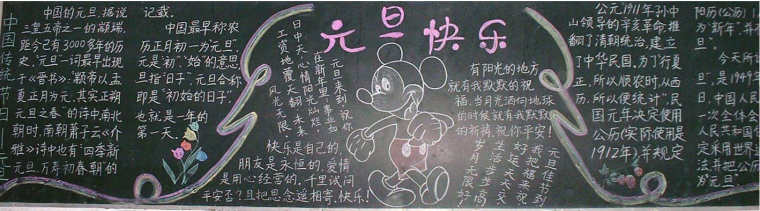 中国传统节日元旦
中国的元旦,据说
三皇五帝之一的颛顼,
距今已有3000多年的历
史,"元旦"一词最早出现
于《晋书》:"颛帝以孟
夏正月为元,其实正朔
元旦之春"的诗中南北
朝时,南朝萧子云《介
雅》诗中也有"四季新
元旦,万寿初春朝"的
记载。
中国最早称农
历正月初一为元旦",
元是"初""始"的意思
旦指"日子",元旦合称
即是"初始的日子",
也就是一年的
第一天。
元旦快乐
日中天心情阳光灿
工资地覆天翻,未来
风光无限
元旦来到祝你
在新年里:事业如
快乐是自己的,
朋友是永恒的,爱情
是用心经营的,千里试问
平安否?且把思念遥相寄,快乐!
有阳光的地方
就有我默默的祝
福,当月光洒向地球
的时候就有我默默
的祈祷,祝你平安!
元旦佳节到
我把福来祝
好运天天交
生活步步高
岁月无限好
公元1911年孙中
山领导的辛亥革命,推
翻了清朝统治,建立
了中华民国。为了"行夏
正,所以顺农时,从西
历,所以便统计",民
国元年决定使用
公历(实际使用是
1912年)并规定
阳历(公历)1
为"新年",并
旦"。
今天所
旦",是1949年
日,中国人民
一次全体会
人民共和国
定采用世界
法并把公历
为"元旦"